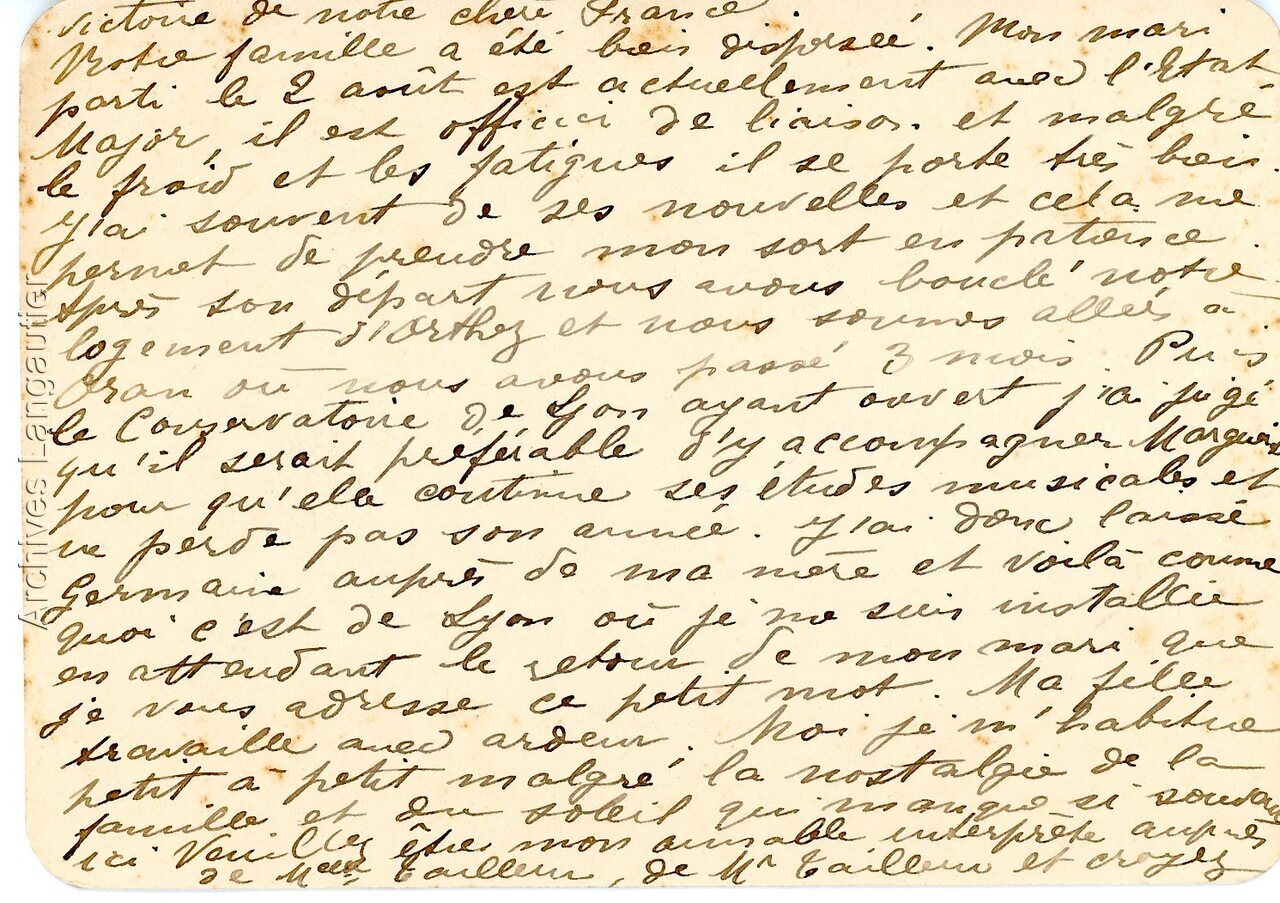 victoire de notre chère France.
Notre famille a été bien dispersée. Mon mari
parti le 2 août est actuellement avec l'Etat
Major, il est officier de liaison et malgré
le froid et les fatigues il se porte très bien.
J'ai souvent de ses nouvelles et cela me
permet de prendre mon sort en patience.
Après son départ nous avons bouclé notre
logement d'Orthez et nous sommes allées à
Oran où nous avons passé 3 mois. Puis
le Conservatoire de Lyon ayant ouvert j'ai jugé
qu'il serait préférable d'y accompagner
pour qu'elle continue ses études musicales et
ne perde pas son année. J'ai donc laissé
Germaine auprès de ma mère et voilà comme
quoi c'est de Lyon où je me suis installée
en attendant le retour de mon mari que
je vous adresse ce petit mot. Ma fille
travaille avec ardeur. Moi je m'habitue
petit à petit malgré la nostalgie de la
famille et du soleil qui manque si souvent
ici Veuillez être mon aimable interprète auprès
de Tailleur, de Mr Tailleur et croyez
Archives Langautier